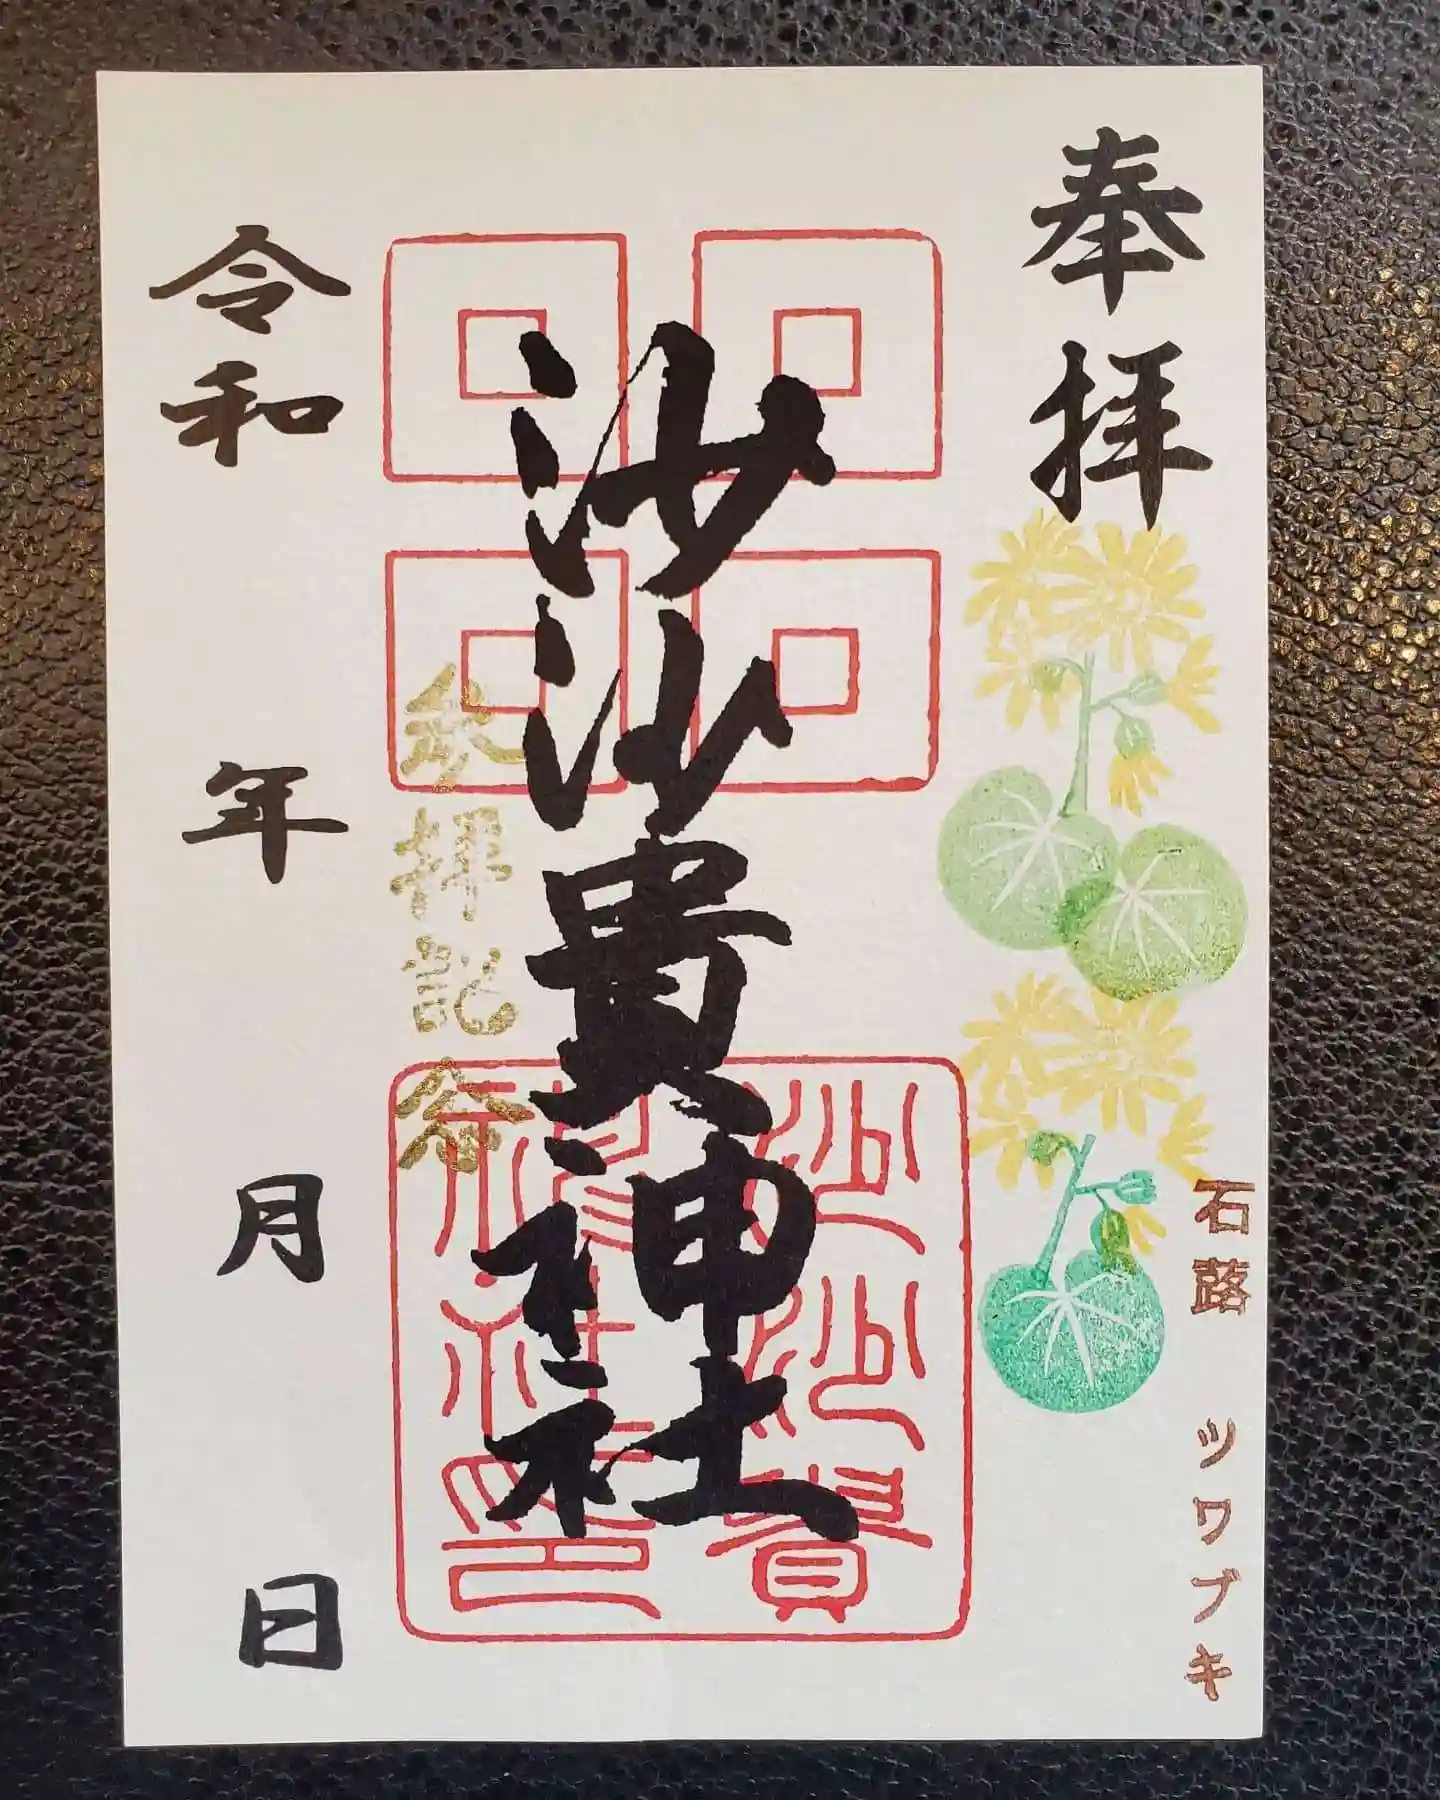 奉拝
石蕗 ツワブキ
沙沙貴神社
沙沙貴
神社印
参拝記念
令和 年 月 日